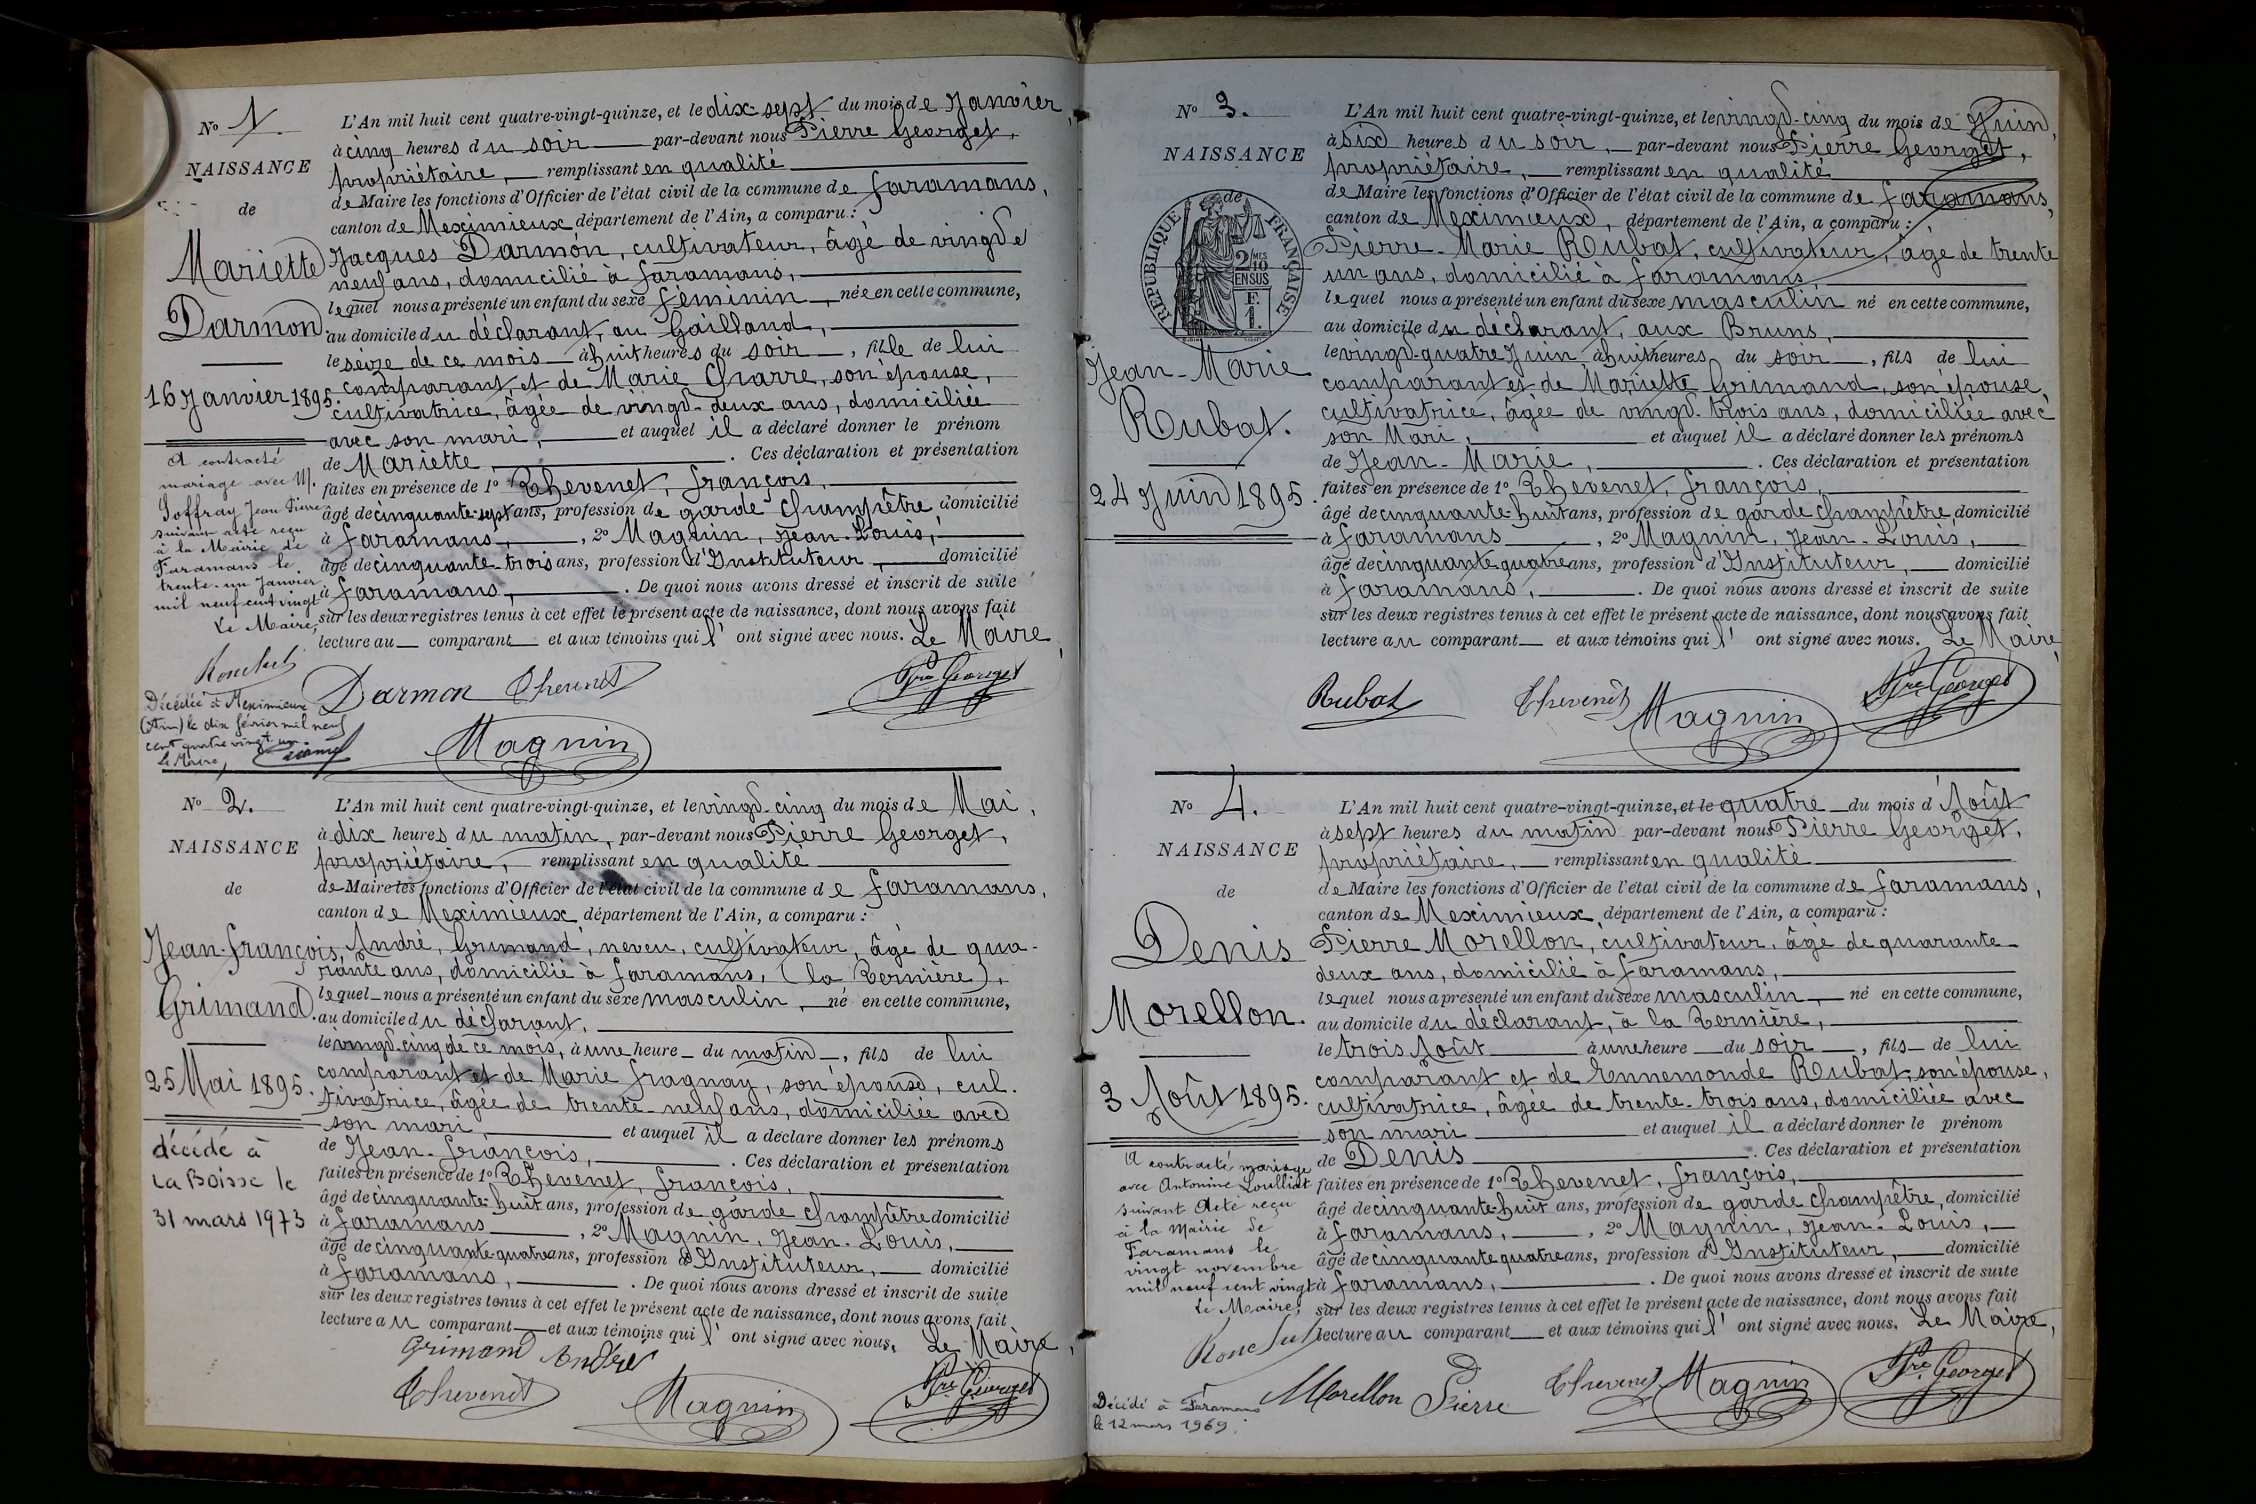 Nº 1.
NAISSANCE
de
Mariette
Darmon.
16 Janvier 1895.
A contracté
mariage avec M.
Joffray Jean Pierre
suivant acte reçu
à la Mairie de
Faramans le
trente-un Janvier
mil neuf cent vingt
Le Maire,
Décédée à Meximieux
(Ain) le dix février mil neuf
cent quatre vingt un
Le Maire,
L'An mil huit cent quatre-vingt-quinze, et le dix-sept du mois de Janvier,
à cinq heures du soir par-devant nous Pierre Georget,
propriétaire, remplissant en qualité
de Maire les fonctions d'Officier de l'état civil de la commune de Faramans,
canton de Meximieux département de l'Ain, a comparu :
Jacques Darmon, cultivateur, âgé de vingt-e
neuf ans, domicilié à Faramans,
lequel nous a présenté un enfant du sexe féminin, née en cette commune,
au domicile du déclarant, au Gailland,
le seize de ce mois à huit heures du soir, fille de lui
comparant et de Marie Charre, son épouse,
cultivatrice, âgée de vingt-deux ans, domiciliée
avec son mari, et auquel il a déclaré donner le prénom
de Mariette, . Ces déclaration et présentation
faites en présence de 1º Thevenet, François,
âgé de cinquante-sept ans, profession de garde champêtre domicilié
à Faramans, , 2º Magnin, Jean-Louis,
âgé de cinquante-trois ans, profession d'Instituteur, domicilié
à Faramans, . De quoi nous avons dressé et inscrit de suite
sur les deux registres tenus à cet effet le présent acte de naissance, dont nous avons fait
lecture au comparant et aux témoins qui l' ont signé avec nous. Le Maire,
Darmon Thevenet Pre Georget
Magnin
Nº 2.
NAISSANCE
de
Jean-François,
Grimand.
25 Mai 1895.
décédé à
La Boisse le
31 mars 1973
L'An mil huit cent quatre-vingt-quinze, et le vingt-cinq du mois de Mai,
à dix heures du matin, par-devant nous Pierre Georget,
propriétaire, remplissant en qualité
de Maire les fonctions d'Officier de l'état civil de la commune de Faramans,
canton de Meximieux département de l'Ain, a comparu :
André, Grimand, neveu, cultivateur, âgé de qua-
rante ans, domicilié à Faramans, (la Bernière),
lequel nous a présenté un enfant du sexe masculin, né en cette commune,
au domicile du déclarant,
le vingt-cinq de ce mois, à une heure du matin, fils de lui
comparant et de Marie Fragnay, son épouse, cul-
tivatrice, âgée de trente-neuf ans, domiciliée avec
son mari et auquel il a déclaré donner les prénoms
de Jean-François, . Ces déclaration et présentation
faites en présence de 1º Thevenet, François,
âgé de cinquante-huit ans, profession de garde champêtre domicilié
à Faramans , 2º Magnin, Jean-Louis,
âgé de cinquante-quatre ans, profession d'Instituteur, domicilié
à Faramans, . De quoi nous avons dressé et inscrit de suite
sur les deux registres tenus à cet effet le présent acte de naissance, dont nous avons fait
lecture au comparant et aux témoins qui l' ont signé avec nous. Le Maire,
Grimand André
Thevenet Magnin Pre Georget
Nº 3.
NAISSANCE
de
RÉPUBLIQUE FRANÇAISE
2 MES
10
EN SUS
F.
1.
Jean-Marie
Rubat.
24 Juin 1895.
L'An mil huit cent quatre-vingt-quinze, et le vingt-cinq du mois de Juin,
à six heures du soir, par-devant nous Pierre Georget,
propriétaire, remplissant en qualité
de Maire les fonctions d'Officier de l'état civil de la commune de Faramans,
canton de Meximieux, département de l'Ain, a comparu :
Pierre-Marie Rubat, cultivateur, âgé de trente
un ans, domicilié à Faramans,
lequel nous a présenté un enfant du sexe masculin né en cette commune,
au domicile du déclarant, aux Bruns,
le vingt-quatre Juin à huit heures du soir, fils de lui
comparant et de Mariette Grimand, son épouse,
cultivatrice, âgée de vingt-trois ans, domiciliée avec
son Mari, et auquel il a déclaré donner les prénoms
de Jean-Marie, . Ces déclaration et présentation
faites en présence de 1º Thevenet, François,
âgé de cinquante-huit ans, profession de garde champêtre, domicilié
à Faramans , 2º Magnin, Jean-Louis,
âgé de cinquante-quatre ans, profession d'Instituteur, domicilié
à Faramans, . De quoi nous avons dressé et inscrit de suite
sur les deux registres tenus à cet effet le présent acte de naissance, dont nous avons fait
lecture au comparant et aux témoins qui l' ont signé avec nous. Le Maire,
Rubat Thevenet Magnin Pre Georget
Nº 4.
NAISSANCE
de
Denis
Morellon.
3 Août 1895.
A contracté mariage
avec Antonine Loulliat
suivant Acte reçu
à la Mairie de
Faramans le
vingt novembre
mil neuf cent vingt
Le Maire,
Décédé à Faramans
le 12 mars 1969.
L'An mil huit cent quatre-vingt-quinze, et le quatre du mois d'Août
à sept heures du matin par-devant nous Pierre Georget,
propriétaire, remplissant en qualité
de Maire les fonctions d'Officier de l'état civil de la commune de Faramans,
canton de Meximieux, département de l'Ain, a comparu :
Pierre Morellon, cultivateur, âgé de quarante-
deux ans, domicilié à Faramans,
lequel nous a présenté un enfant du sexe masculin, né en cette commune,
au domicile du déclarant, à la Bernière,
le trois Août à une heure du soir, fils de lui
comparant et de Ennemonde Rubat, son épouse,
cultivatrice, âgée de trente-trois ans, domiciliée avec
son mari et auquel il a déclaré donner le prénom
de Denis . Ces déclaration et présentation
faites en présence de 1º Thevenet, François,
âgé de cinquante-huit ans, profession de garde champêtre, domicilié
à Faramans, , 2º Magnin, Jean-Louis,
âgé de cinquante-quatre ans, profession d'Instituteur, domicilié
à Faramans, . De quoi nous avons dressé et inscrit de suite
sur les deux registres tenus à cet effet le présent acte de naissance, dont nous avons fait
lecture au comparant et aux témoins qui l' ont signé avec nous. Le Maire,
Morellon Pierre Thevenet Magnin Pre Georget